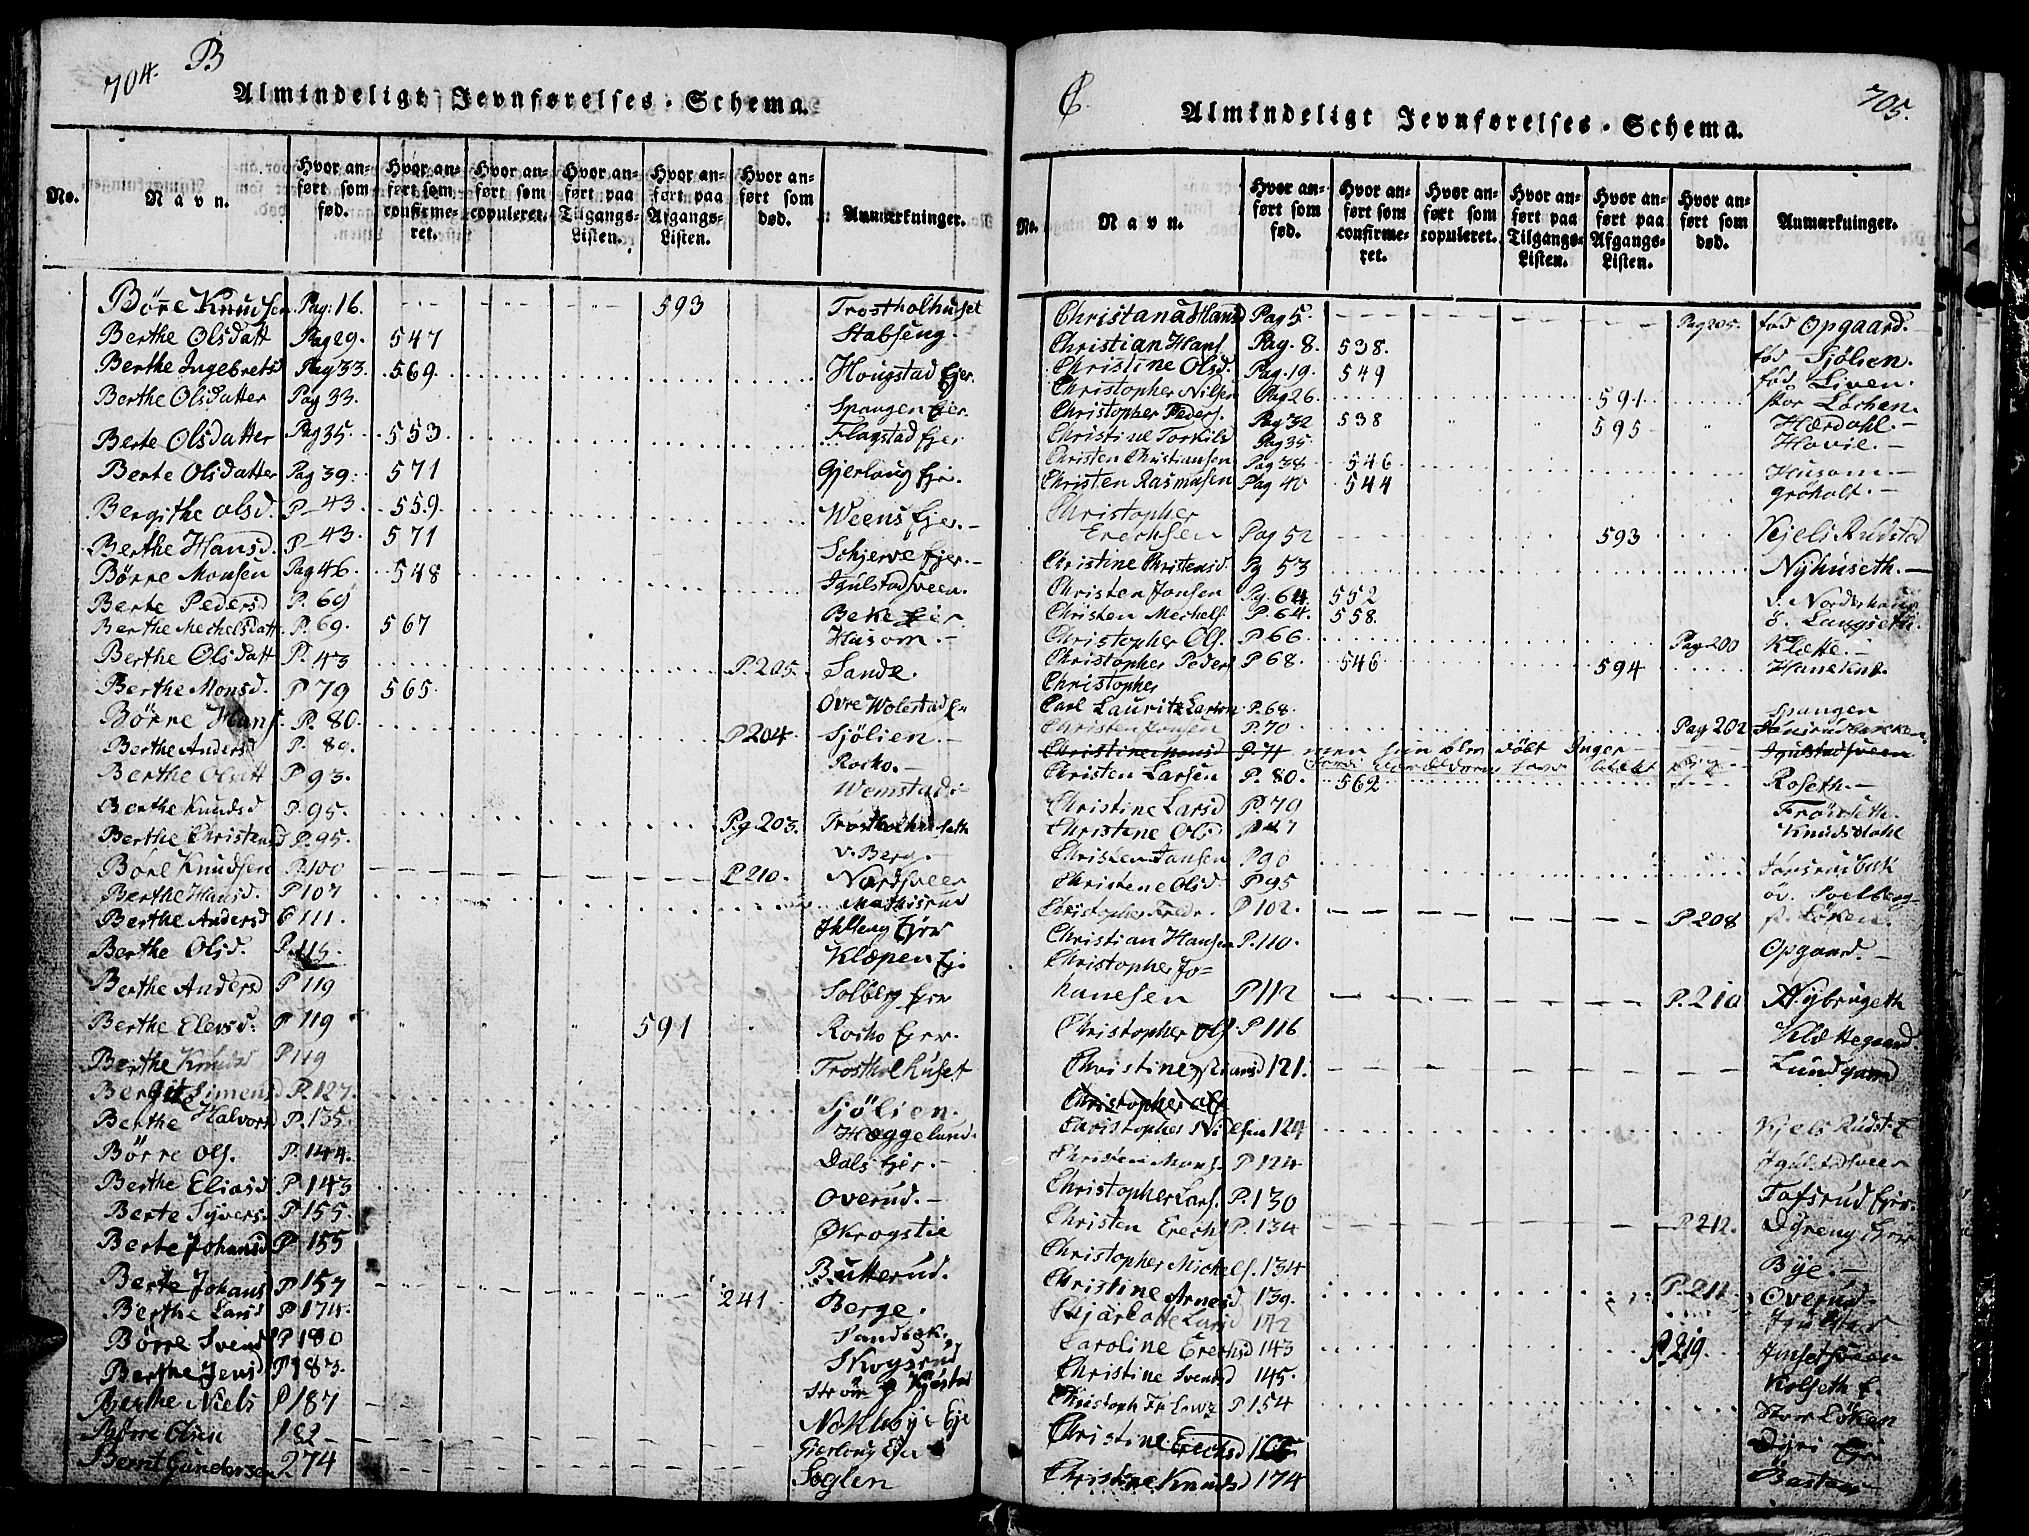 704. B
Almindeligt Jevnførelses-Schema.
No.
Navn.
Hvor anført som fød.
Hvor anført som confirmeret.
Hvor anført som copuleret.
Hvor anført paa Tilgangs-Listen.
Hvor anført paa Afgangs-Listen.
Hvor anført som død.
Anmærkninger.
Börre Knudsen Pag: 16. 593 Trostholhuset
Berthe Olsdatt Pag 29. 547 Stabseng.
Berthe Ingebretsd Pag 33. 569 Hougstad Ejer.
Berthe Olsdatter Pag 33. Spangen Ejer.
Berte Olsdatter Pag 35. 553 Flagstad Ejer
Berte Olsdatter Pag 39. 571 Gjerloug Eje.
Bergithe Olsd. P 43. 559. Weens Ejer.
Berthe Hansd. P 43. 571 Schjerve Ejer.
Börre Monsen Pag 46. 548 Igulstadsveen.
Berte Pedersd P. 69 Beke Ejer
Berthe Mechelsdatt. P. 69. 567 Husom.
Berthe Olsdatt P. 43 P. 205. Sande.
Berthe Monsd. P 79 565. Övre Wolestad Er
Börre Hans. P. 80. P 204. Sjölien
Berthe Andersd P. 80. Rocho.
Berthe Olsdatt P 93. Wemstad
Berthe Knudsd P. 95. Pg. 203. Trostholhusette
Berthe Christensd P. 95. v. Berg.
Börre Knudsen P. 100 P. 210. Nordsveer
Berthe Hansd. P 107 Mathisrud
Berthe Andersd P 111. Hilleng Ejer
Berthe Olsd. P. 115. Klæpen Ej.
Berthe Andersd P 119 Solberg Eier
Berthe Elevsd. P 119 591 Rocho Eier.
Berthe Knuds P 119 Trostholhuset
Bergit Simensd P. 127. Sjölien.
Berthe Halvors P. 135. Hæggelund.
Börre Ols. P. 144. Dals Ejer.
Berthe Eliasd P. 143 Overud.
Berte Syvers. P 155. Økrogstie
Berte Johansd P 155 Butterud.
Berte Johans P 157 241 Berge.
Berthe Larsd P 174. Sandbæk.
Börre Svend P 180 Skoysrud
Berthe Jensd P 183. Ström
Berthe Niels P 187 Nokleby Eje
Börre Olsen 182 Gierloug Eje
Bernt Gundersen 274 Soglen
C. 705.
Almindeligt Jevnførelses-Schema.
No.
Navn.
Hvor anført som fød.
Hvor anført som confirmeret.
Hvor anført som copuleret.
Hvor anført paa Tilgangs-Listen.
Hvor anført paa Afgangs-Listen.
Hvor anført som død.
Anmærkninger.
Christana Hansd Pag 5. Pag 205. fød Opgaard.
Christian Hans. Pag. 8. 538. fød Sjölien.
Christine Olsd. Pag. 19. 549 fød Lien.
Christopher Nilsen Pag 26. 591 stor Löchen
Christopher Peders. Pag 32 538 595 Hærdahl.
Christine Torkilds Pag 35 Hovie.
Christen Christiansen Pag 38 546 Husom
Christen Rasmusen Pag 40 544 gröholt.
Christopher
Erechsen Pag 52 593 Kjels Rudstad
Christine Christensd. Pg 53 Nyhuseth.
Christen Jonsen Pg. 64 552 v. Norderhaug
Christen Mechels. P. 64. 558. ö. Langseth.
Christopher Ols. P 66 Pag 200 Klætte.
Christopher Peders P 68. 546 594 Hanekne.
Christopher
Carl Lauritz Larson P. 68. Spangen
Christen Jonsen P. 70 Pag 202 Jonsrudbakken
Christine Monsd P 74 men hun blev döbt Inger Igulstadsveen
Christen Larsen P. 80. 562 Roseth.
Christine Larsd P. 79 Fröiseth.
Christine Olsd 87 Knudsdahl
Christen Jansen P 90 Jonsrudbak
Christene Olsd. P 95 öv. Soelberg
Christopher Fredr. P 102. P. 208 st. Löken.
Christian Hansen P. 110. Opgaard.
Christopher Jo-
hanesen P 112 P. 210 Nybrugeth
Christopher Ols P 116 Klættegaard
Christine Knudsd 121. Lundgaard
Christopher Ols
Christopher Nielsen 124 Kjels Rudst. E
Christen Mons. P 124 Igulstadsveen
Christopher Lars. P. 130 Tofsrud Ejer.
Christen Erechs P. 134 P. 212. Dyreng Ejer
Christopher Michels. 134 Bye.
Christine Arnesd 139. P. 211 Overud
Charlotte Larsd 142 Igulstad
Caroline Erechsd 143 P. 219. Imsetsveen
Christine Svendsd 145. Kolseth E.
Christoph Fr. Lowz P 154 Stor Löken
Christine Erechsd 165 Dyri Eje
Christine Knudsd 174 Basten